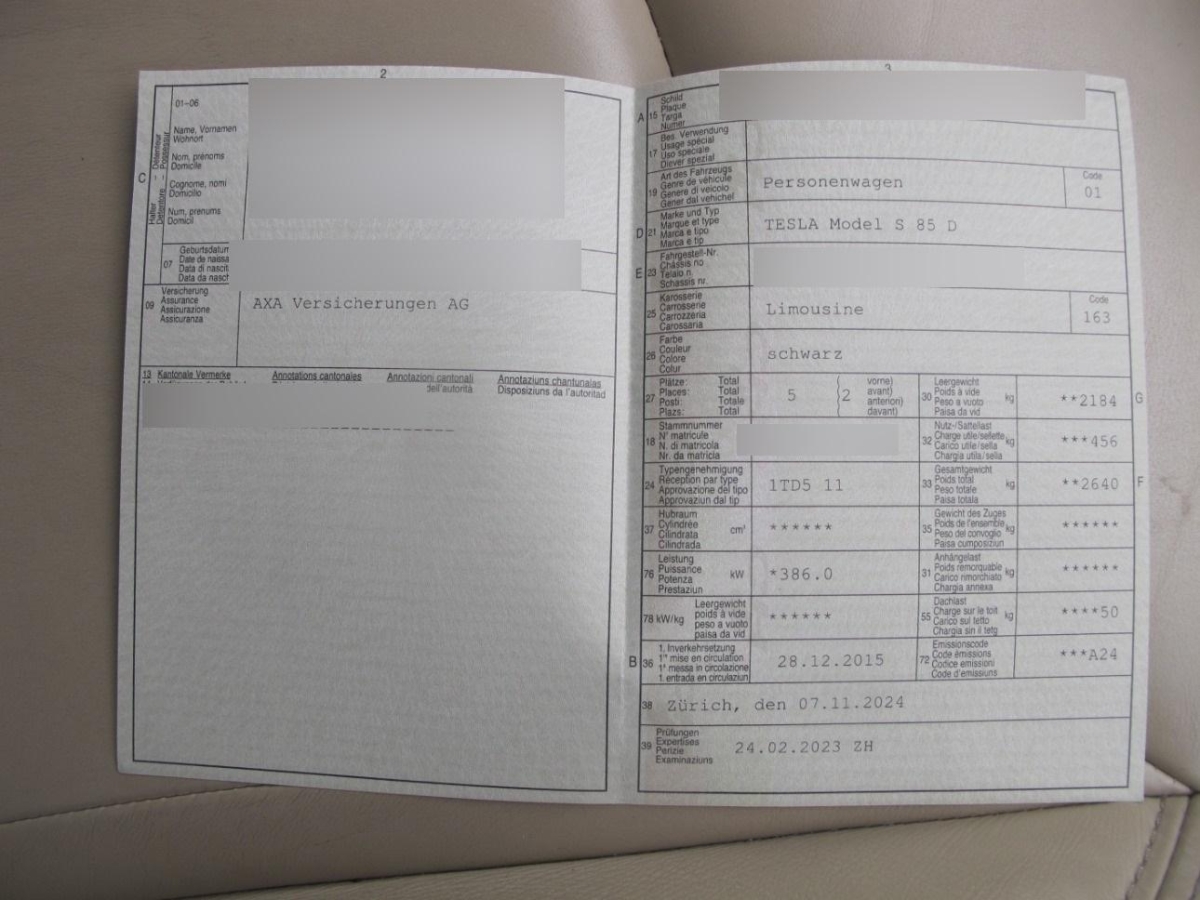 2
01-06
Halter – Détenteur
Detentore – Possessur
C
Name, Vornamen
Wohnort
Nom, prénoms
Domicile
Cognome, nomi
Domicilio
Num, prenums
Domicil
07
Geburtsdatum
Date de naissa
Data di nascit
Data da nascT
09
Versicherung
Assurance
Assicurazione
Assicuranza
AXA Versicherungen AG
13 Kantonale Vermerke Annotations cantonales Annotazioni cantonali Annotaziuns chantunalas
dell'autorità Disposiziuns da l'autoritad
3
A 15
Schild
Plaque
Targa
Numer
17
Bes. Verwendung
Usage spécial
Uso speciale
Diever spezial
19
Art des Fahrzeugs
Genre de véhicule
Genere di veicolo
Gener dal vehichel
Personenwagen
Code
01
D 21
Marke und Typ
Marque et type
Marca e tipo
Marca e tip
TESLA Model S 85 D
E 23
Fahrgestell-Nr.
Châssis no
Telaio n.
Schassis nr.
25
Karosserie
Carrosserie
Carrozzeria
Carossaria
Limousine
Code
163
26
Farbe
Couleur
Colore
Colur
schwarz
27
Plätze: Total
Places: Total
Posti: Totale
Plazs: Total
5 {2
vorne)
avant)
anteriori)
davant)
30
Leergewicht
Poids à vide
Peso a vuoto
Paisa da vid
kg
**2184
G
18
Stammnummer
N° matricule
N. di matricola
Nr. da matricla
32
Nutz-/Sattellast
Charge utile/sellette
Carico utile/sella
Chargia utila/sella
kg
***456
24
Typengenehmigung
Réception par type
Approvazione del tipo
Approvaziun dal tip
1TD5 11
33
Gesamtgewicht
Poids total
Peso totale
Paisa totala
kg
**2640
F
37
Hubraum
Cylindrée
Cilindrata
Cilindrada
cm³
******
35
Gewicht des Zuges
Poids de l'ensemble
Peso del convoglio
Paisa cumposiziun
kg
******
76
Leistung
Puissance
Potenza
Prestaziun
kW
*386.0
31
Anhängelast
Poids remorquable
Carico rimorchiato
Chargia annexa
kg
******
78 kW/kg
Leergewicht
poids à vide
peso a vuoto
paisa da vid
******
55
Dachlast
Charge sur le toit
Carico sul tetto
Chargia sin il tetg
kg
****50
B 36
1. Inverkehrsetzung
1re mise en circulation
1a messa in circolazione
1. entrada en circulaziun
28.12.2015
72
Emissionscode
Code émissions
Codice emissioni
Code d'emissiuns
***A24
38 Zürich, den 07.11.2024
39
Prüfungen
Expertises
Perizie
Examinaziuns
24.02.2023 ZH